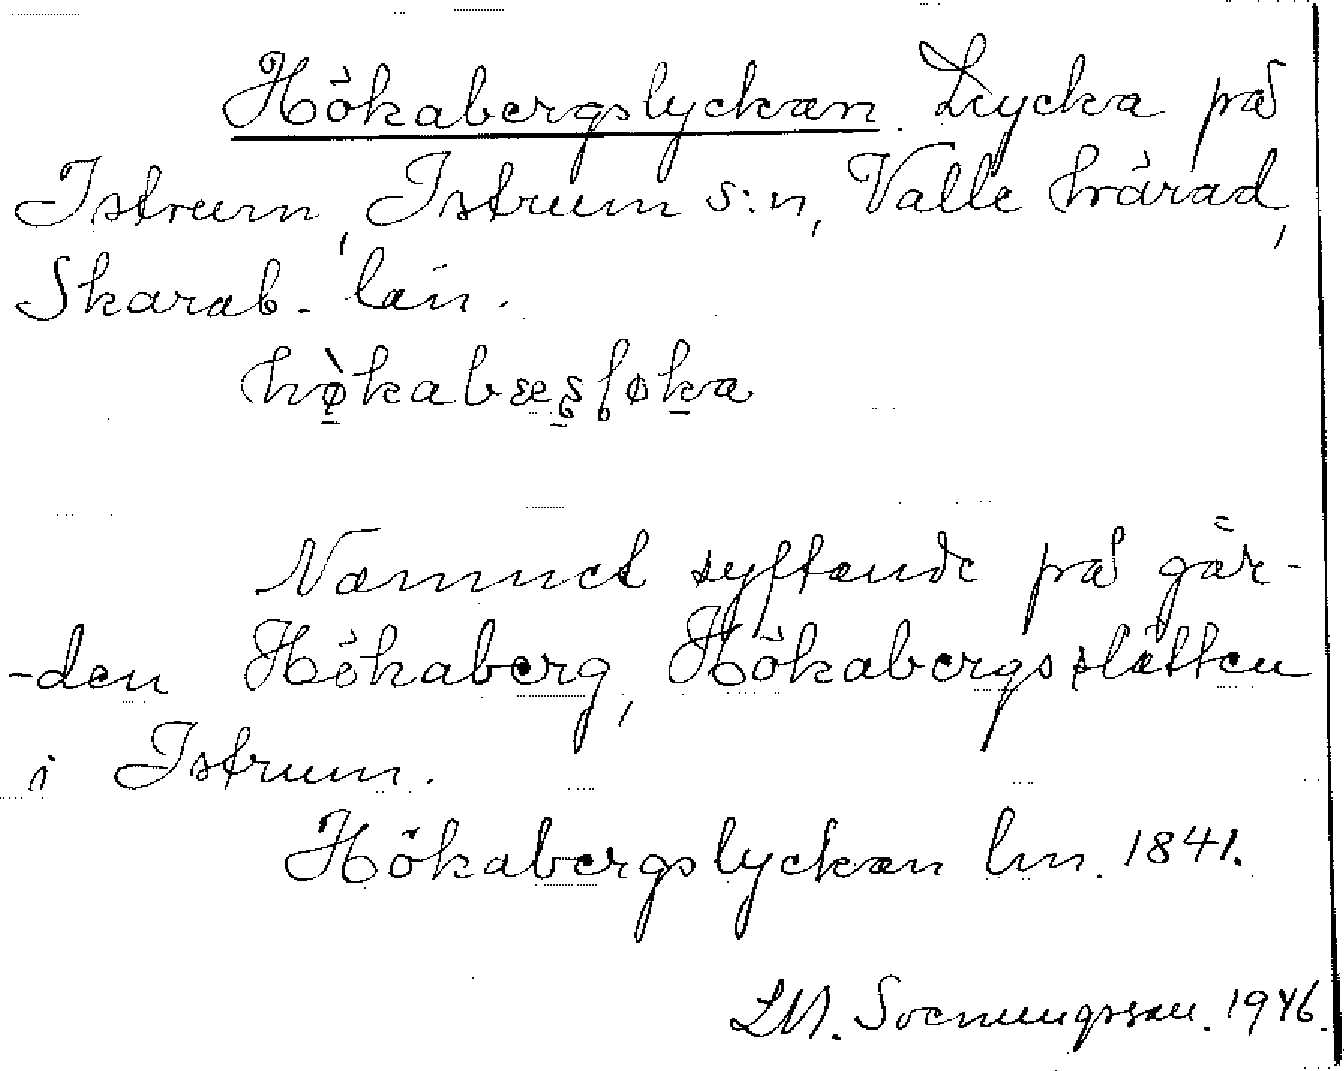 Hökabergslyckan. Lycka på
Istrum, Istrum s:n, Valle härad,
Skarab. län.
Namnet syftande på går-
-den Hökaberg, Hökabergsslätten
i Istrum.
Hökabergslyckan lm. 1841.
1946.